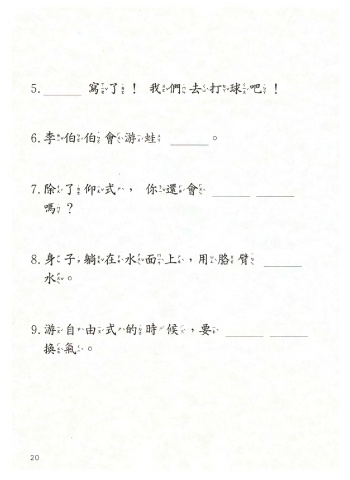 5. ______ 寫了！ 我們去打球吧！
6. 李伯伯會游蛙 ______。
7. 除了仰式， 你還會 ______ ______
嗎？
8. 身子躺在水面上，用胳臂 ______
水。
9. 游自由式的時候，要 ______ ______
換氣。
20